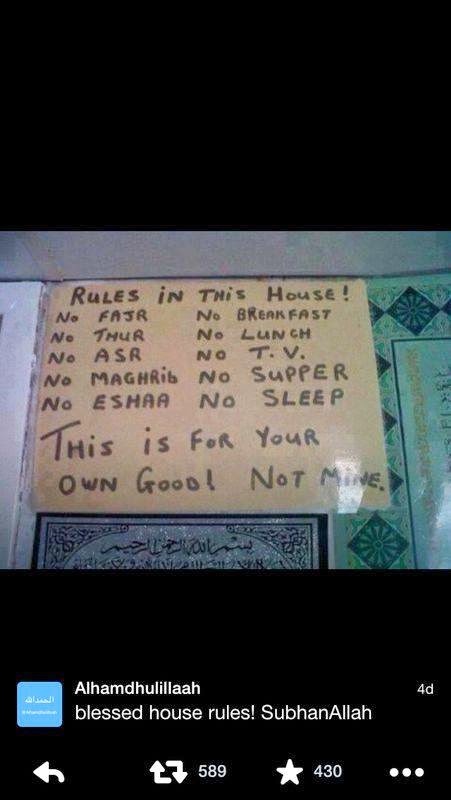 RULES IN THIS HOUSE!
No FAJR No BREAKFAST
No THUR No LUNCH
No ASR NO T.V.
No MAGHRIB No SUPPER
No ESHAA No SLEEP
THIS IS FOR YOUR
OWN GOOD! NOT MINE.
بسم الله الرحمن الرحيم
الحمدلله
Alhamdhulillaah 4d
blessed house rules! SubhanAllah
589 430